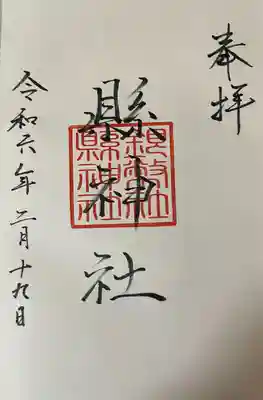 奉拝
縣神社
令和六年二月十九日